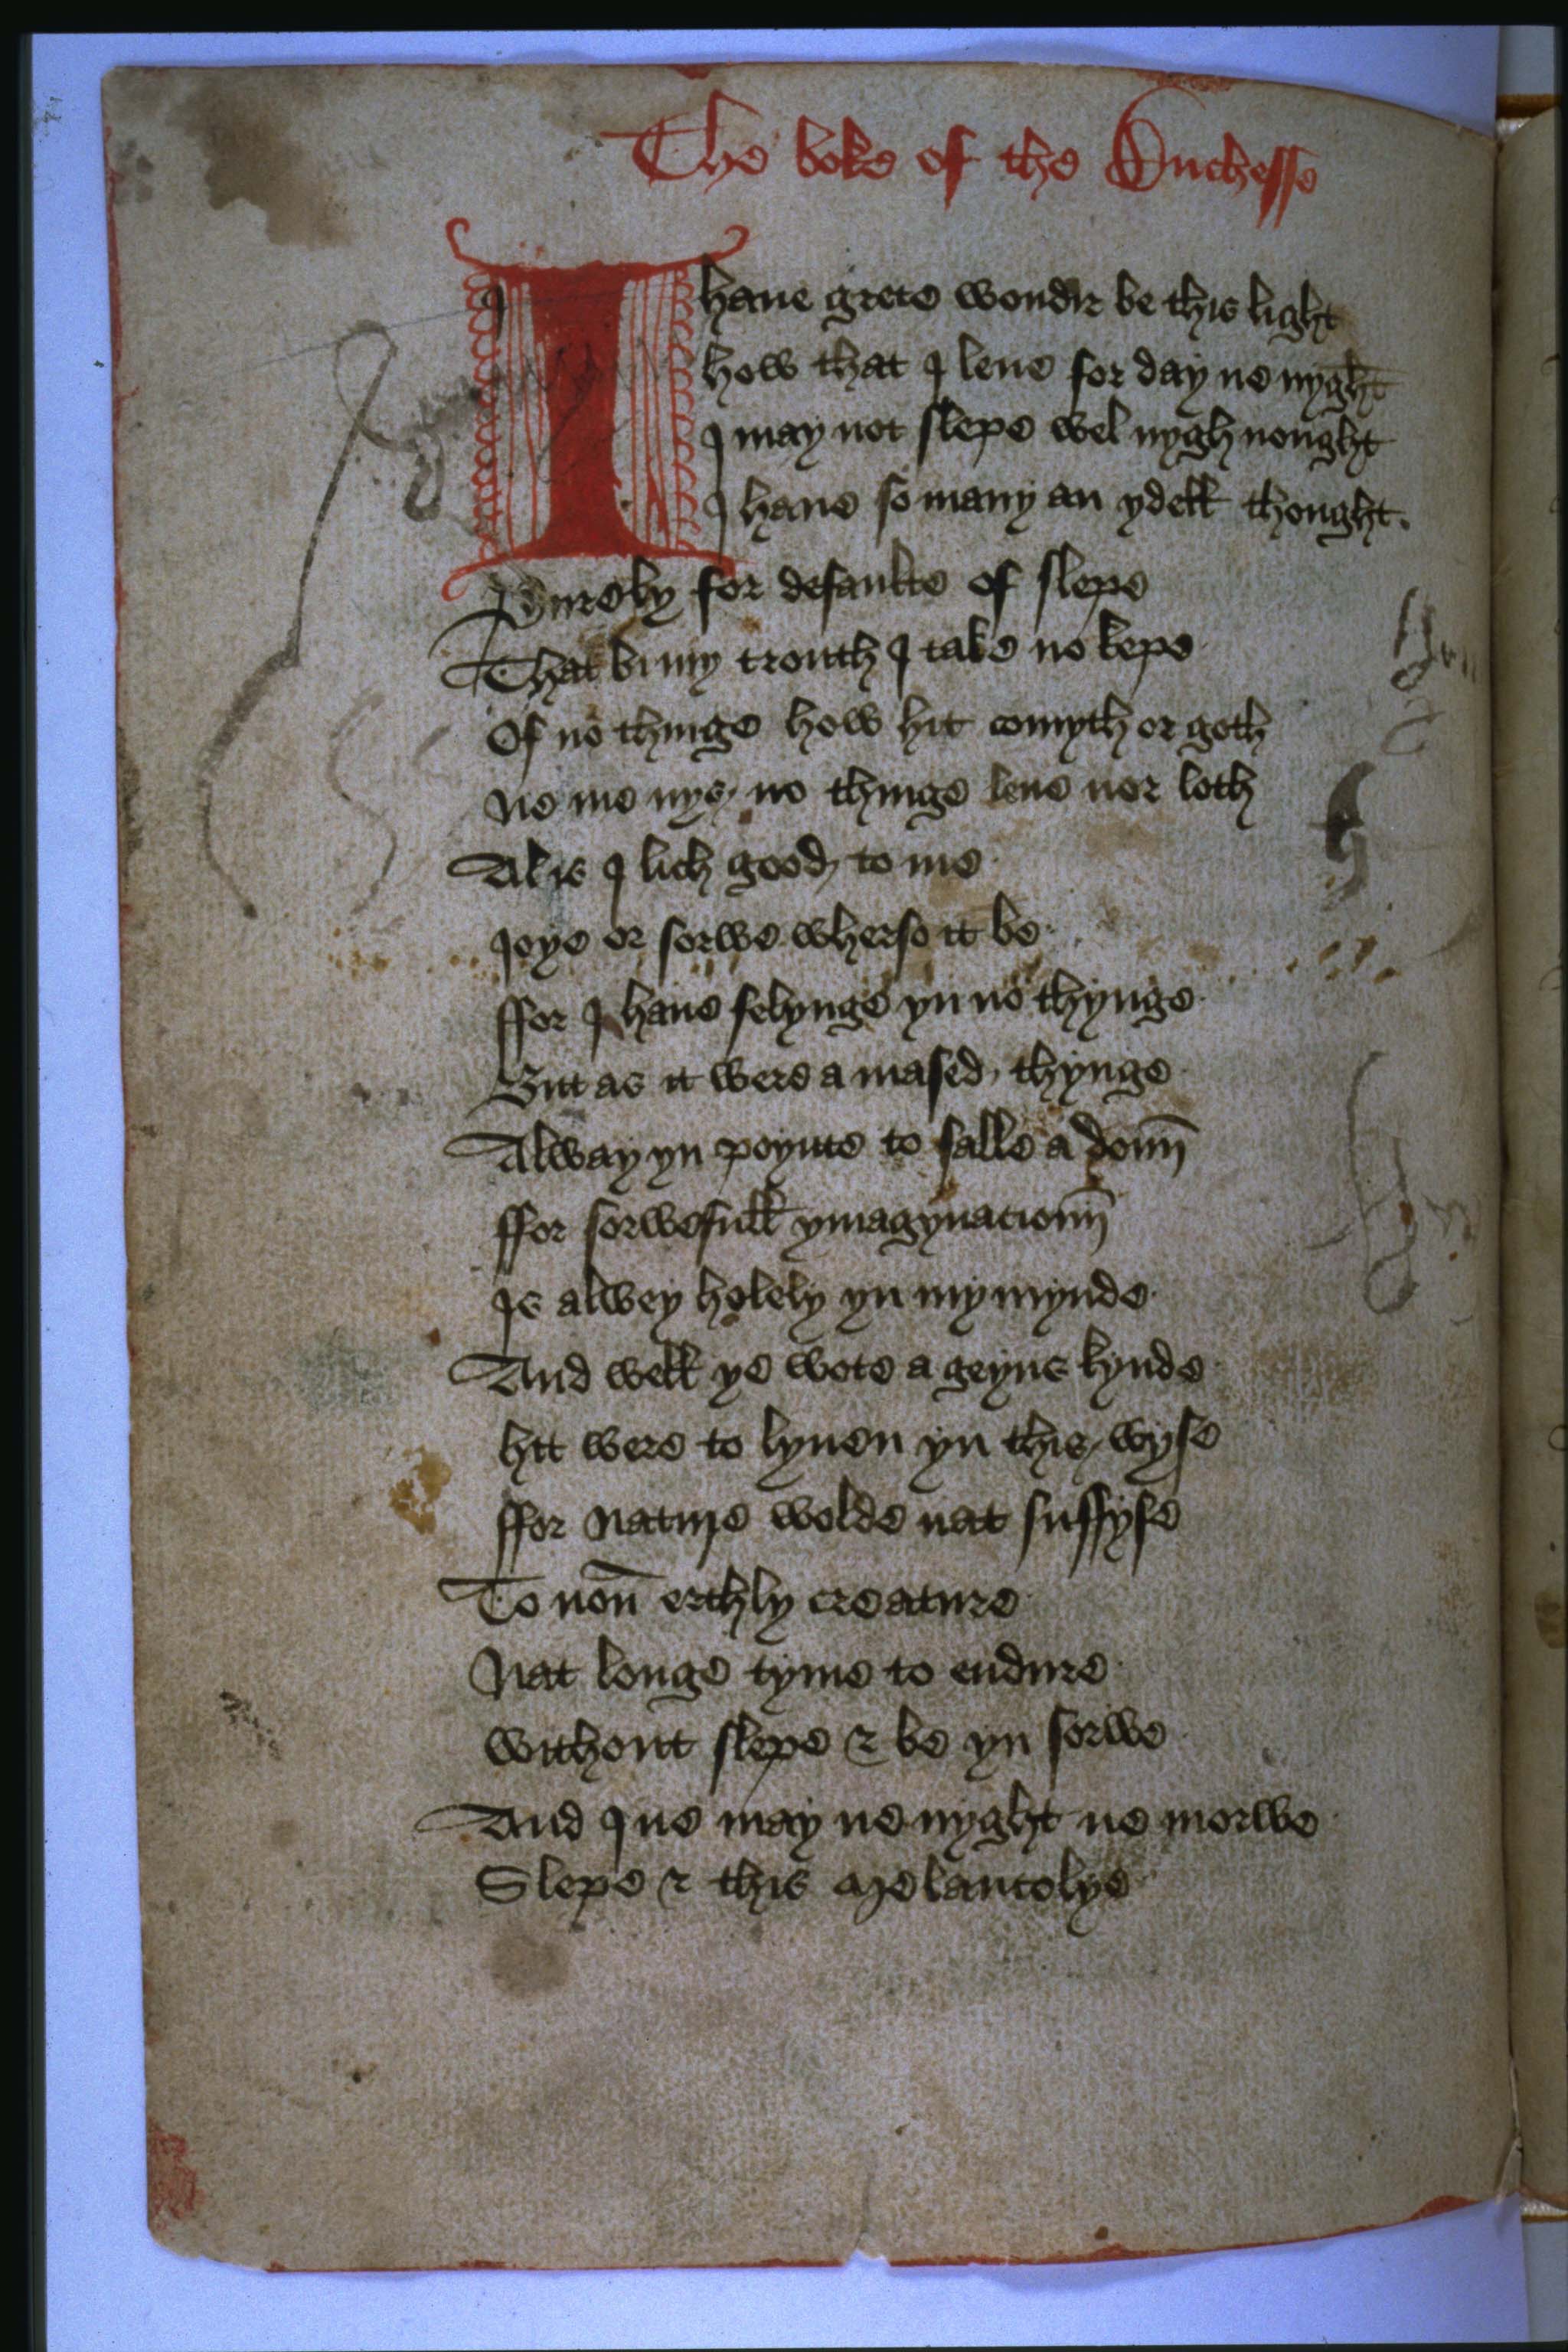 The boke of the Duchesse
I haue grete wondir be this light
how that I leue for day ne nyght
I may not slepe wel nygh nought
I haue so many an ydell thought.
Purely for defaulte of slepe
That bi my trouth I take no kepe
Of no thinge how hit comyth or goth
Ne me nys no thinge leue nor loth
Al is I lich good to me
Ioye or sorwe wherso it be
ffor I haue felynge yn no thynge
But as it were a mased thynge
Alway yn poynte to falle a doun̄
ffor sorwefull ymagynacioun̄
Is alwey holely yn my mynde
And well ye wote a geyns kynde
hit were to lyuen yn this wyse
ffor nature wolde nat suffyse
To noūn erthly creature
Nat longe tyme to endure
without slepe & be yn sorwe
And I ne may ne nyght ne morwe
Slepe & this Melancolye